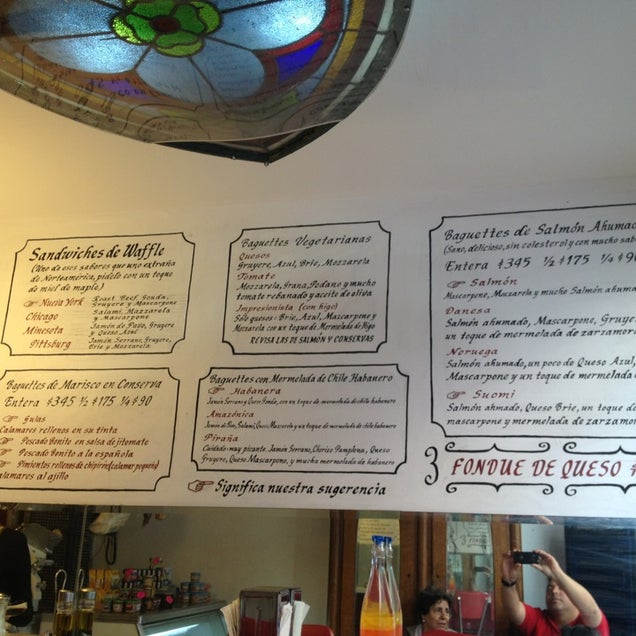 Sandwiches de Waffle
(Uno de esos sabores que uno extraña
de Norteamérica, pídelo con un toque
de miel de maple)
Nueva York Roast Beef, Gouda,
Gruyere y Mascarpone
Chicago Salami, Mozzarela
y Mascarpone
Minesota Jamón de Pavo, Gruyere
y Queso Azul
Pittsburg Jamón Serrano, Grana,
Brie y Mozzarela
Baguettes Vegetarianas
Quesos
Gruyere, Azul, Brie, Mozzarela
Tomate
Mozzarela, Grana, Sedano y mucho
tomate rebanado y aceite de oliva
Impresionista (con higo)
Sólo quesos: Brie, Azul, Mascarpone y
Mozarela con un toque de Mermelada de Higo
REVISA LAS DE SALMÓN Y CONSERVAS
Baguettes de Salmón Ahumado
(Sano, delicioso, sin colesterol y con mucho sabo
Entera $345 ½ $175 ¼ $90
Salmón
Mascarpone, Mozzarela y mucho Salmón ahuma
Danesa
Salmón ahumado, Mascarpone, Gruye
un toque de mermelada de zarzamor
Noruega
Salmón ahumado, un poco de Queso Azul,
Mascarpone y un toque de mermelada
Suomi
Salmón ahmado, Queso Brie, un toque de
mascarpone y mermelada de zarzamo
Baguettes de Marisco en Conserva
Entera $345 ½ $175 ¼ $90
Gulas
Calamares rellenos en su tinta
Pescado Bonito en salsa de jitomate
Pescado Bonito a la española
Pimientos rellenos de chipirin (calamar pequeño)
alamares al ajillo
Baguettes con Mermelada de Chile Habanero
Habanera
Jamón Serrano y Queso Gouda, con un toque de mermelada de chile habanero
Amazónica
Piraña
Cuidado: muy picante. Jamón Serrano, Chorizo Pamplona, Queso
Gruyere, Queso Mascarpone, y mucha mermelada de habanero
Significa nuestra sugerencia
3 FONDUE DE QUESO $